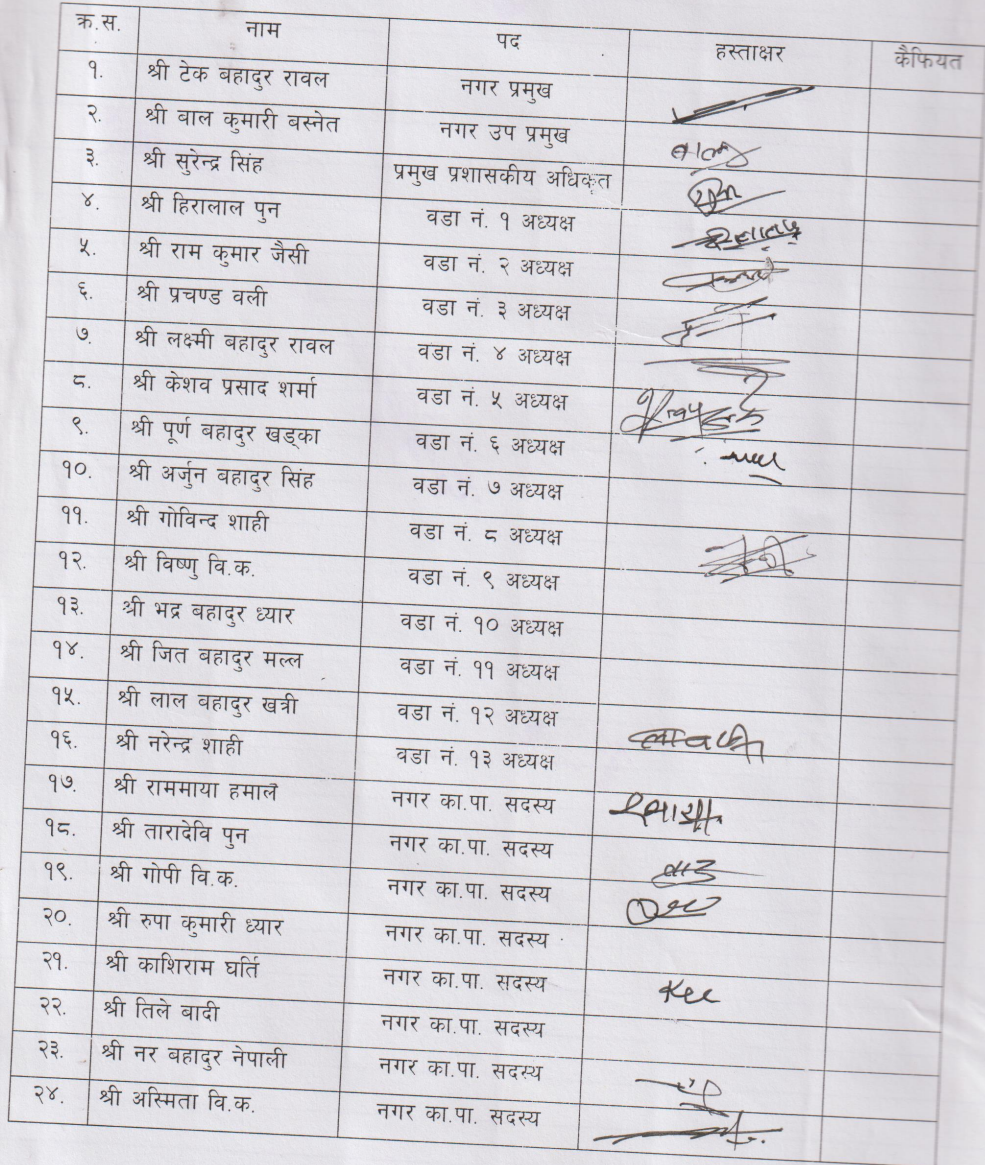 क्र.स. नाम पद हस्ताक्षर कैफियत
१. श्री टेक बहादुर रावल नगर प्रमुख
२. श्री बाल कुमारी बस्नेत नगर उप प्रमुख
३. श्री सुरेन्द्र सिंह प्रमुख प्रशासकीय अधिकृत
४. श्री हिरालाल पुन वडा नं. १ अध्यक्ष
५. श्री राम कुमार जैसी वडा नं. २ अध्यक्ष
६. श्री प्रचण्ड वली वडा नं. ३ अध्यक्ष
७. श्री लक्ष्मी बहादुर रावल वडा नं. ४ अध्यक्ष
८. श्री केशव प्रसाद शर्मा वडा नं. ५ अध्यक्ष
९. श्री पूर्ण बहादुर खड्का वडा नं. ६ अध्यक्ष
१०. श्री अर्जुन बहादुर सिंह वडा नं. ७ अध्यक्ष
११. श्री गोविन्द शाही वडा नं. ८ अध्यक्ष
१२. श्री विष्णु वि.क. वडा नं. ९ अध्यक्ष
१३. श्री भद्र बहादुर ध्यार वडा नं. १० अध्यक्ष
१४. श्री जित बहादुर मल्ल वडा नं. ११ अध्यक्ष
१५. श्री लाल वहादुर खत्री वडा नं. १२ अध्यक्ष
१६. श्री नरेन्द्र शाही वडा नं. १३ अध्यक्ष
१७. श्री राममाया हमाल नगर का.पा. सदस्य
१८. श्री तारादेवि पुन नगर का.पा. सदस्य
१९. श्री गोपी वि.क. नगर का.पा. सदस्य
२०. श्री रुपा कुमारी ध्यार नगर का.पा. सदस्य
२१. श्री काशिराम घर्ति नगर का.पा. सदस्य
२२. श्री तिले बादी नगर का.पा. सदस्य
२३. श्री नर बहादुर नेपाली नगर का.पा. सदस्य
२४. श्री अस्मिता वि.क. नगर का.पा. सदस्य